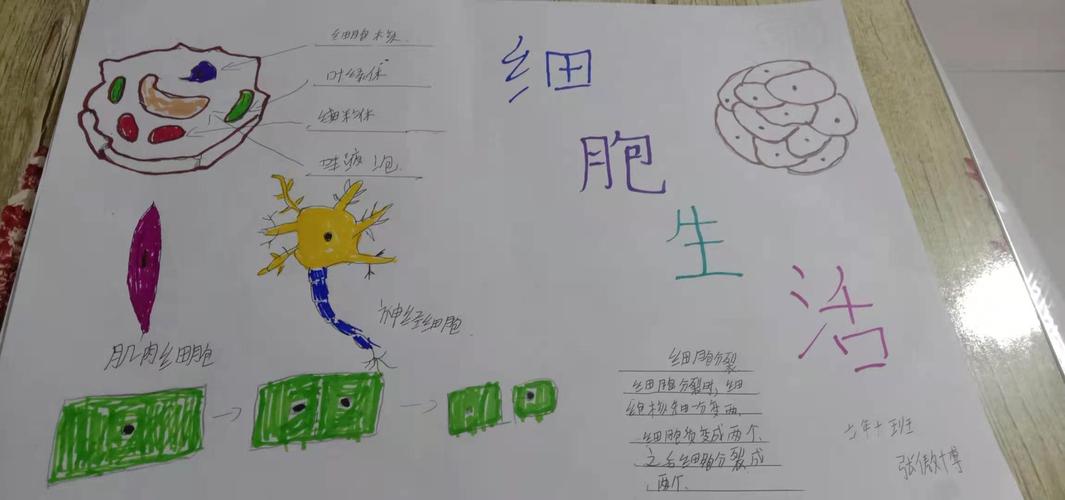 细胞核
叶绿体
线粒体
液泡
细
胞
生
活
肌肉细胞
神经细胞
细胞分裂
细胞分裂时,细
胞核一分变两,
细胞变成两个,
之后细胞分裂成
两个.
七年十班
张傲博